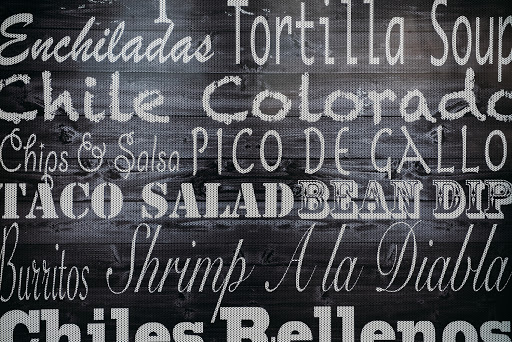 Enchiladas Tortilla Soup
Chile Colorado
Chips & Salsa PICO DE GALLO
TACO SALAD BEAN DIP
Burritos Shrimp A la Diabla
Chiles Rellenos